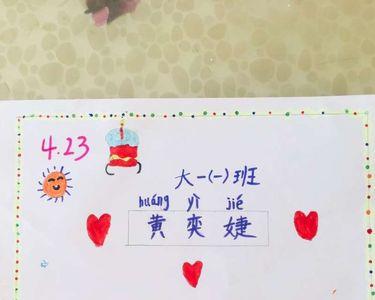 4.23
大一(一)班
huáng yì jié
黄奕婕